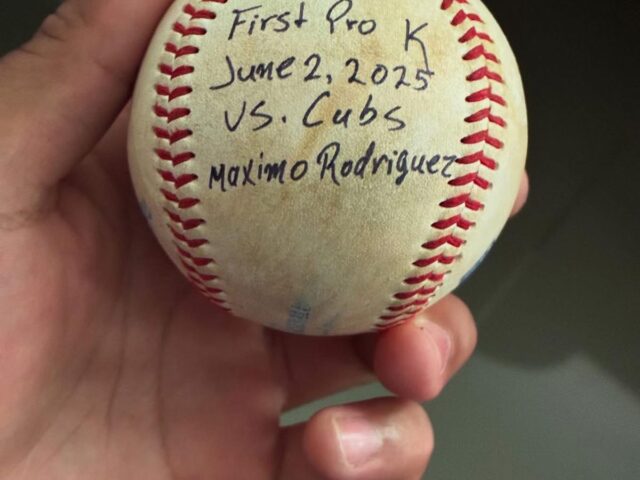 First Pro K
June 2, 2025
VS. Cubs
Maximo Rodriguez